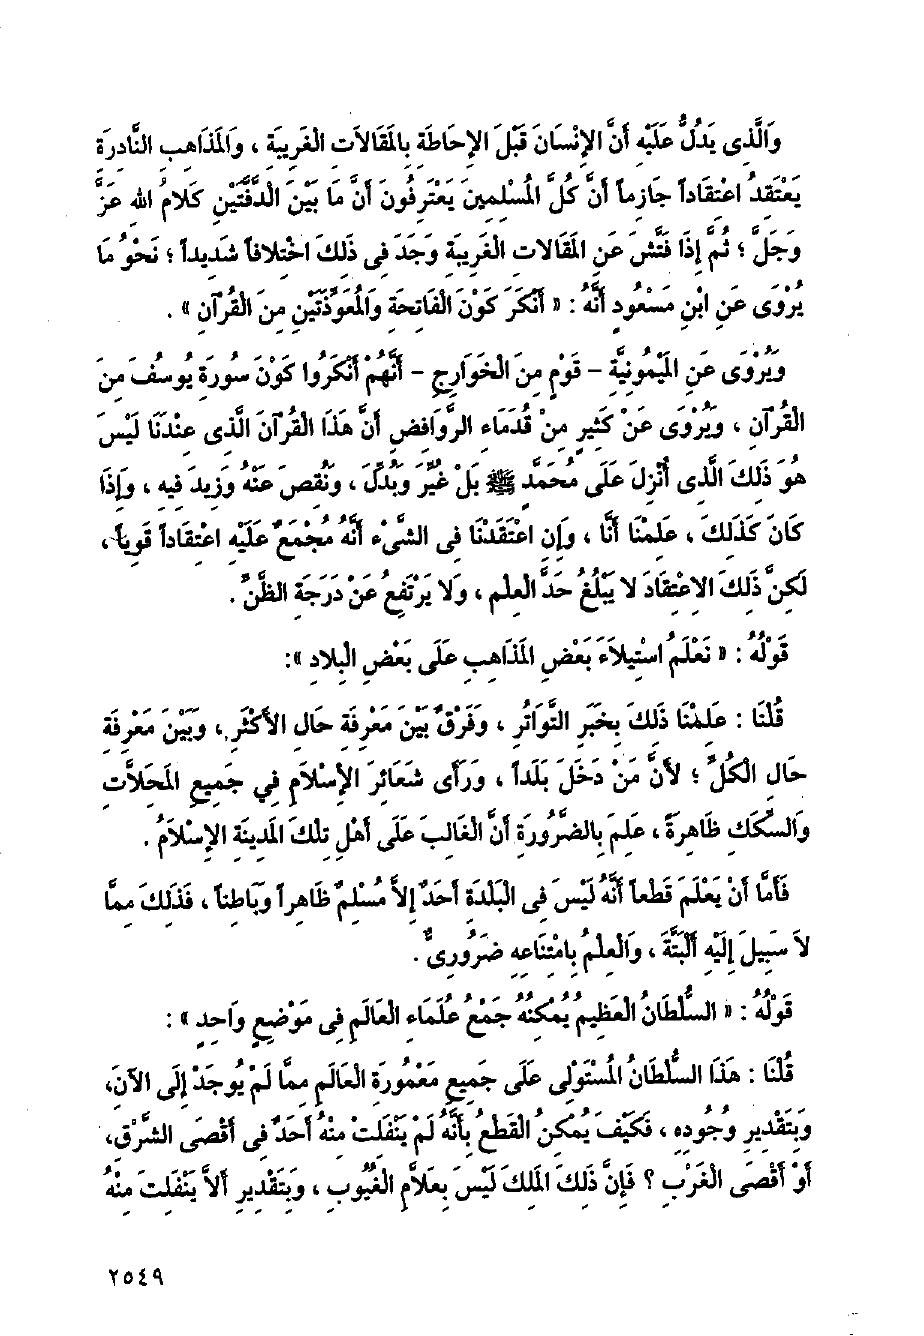 وَالَّذِى يَدُلُّ عَلَيْهِ أَنَّ الإِنْسَانَ قَبْلَ الإِحَاطَةِ بِالمَقَالاَتِ الْغَرِيبَةِ ، وَالمَذَاهِبِ النَّادِرَةِ
يَعْتَقِدُ اعْتِقَاداً جَازِماً أَنَّ كُلَّ المُسْلِمِينَ يَعْتَرِفُونَ أَنَّ مَا بَيْنَ الدَّفَّتَيْنِ كَلاَمُ اللهِ عَزَّ
وَجَلَّ ؛ ثُمَّ إِذَا فَتَّشَ عَنِ المَقَالاَتِ الْغَرِيبَةِ وَجَدَ فِى ذَلِكَ اخْتِلاَفاً شَدِيداً ؛ نَحْوُ مَا
يُرْوَى عَنِ ابْنِ مَسْعُودٍ أَنَّهُ : « أَنْكَرَ كَوْنَ الْفَاتِحَةِ وَالمُعَوِّذَتَيْنِ مِنَ الْقُرْآنِ » .
وَيُرْوَى عَنِ المَيْمُونِيَّةِ – قَوْمٍ مِنَ الْخَوَارِجِ – أَنَّهُمْ أَنْكَرُوا كَوْنَ سُورَةِ يُوسُفَ مِنَ
الْقُرْآنِ ، وَيُرْوَى عَنْ كَثِيرٍ مِنْ قُدَمَاءِ الرَّوَافِضِ أَنَّ هَذَا الْقُرْآنَ الَّذِى عِنْدَنَا لَيْسَ
هُوَ ذَلِكَ الَّذِى أُنْزِلَ عَلَى مُحَمَّدٍ ﷺ بَلْ غُيِّرَ وَبُدِّلَ ، وَنُقِصَ عَنْهُ وَزِيدَ فِيهِ ، وَإِذَا
كَانَ كَذَلِكَ ، عَلِمْنَا أَنَّا ، وَإِنِ اعْتَقَدْنَا فِى الشَّىْءِ أَنَّهُ مُجْمَعٌ عَلَيْهِ اعْتِقَاداً قَوِياً ،
لَكِنَّ ذَلِكَ الاِعْتِقَادَ لاَ يَبْلُغُ حَدَّ الْعِلْمِ ، وَلاَ يَرْتَفِعُ عَنْ دَرَجَةِ الظَّنِّ .
قَوْلُهُ : « نَعْلَمُ اسْتِيلاَءَ بَعْضِ المَذَاهِبِ عَلَى بَعْضِ الْبِلاَدِ »:
قُلْنَا : عَلِمْنَا ذَلِكَ بِخَبَرِ التَّوَاتُرِ ، وَفَرْقٌ بَيْنَ مَعْرِفَةِ حَالِ الأَكْثَرِ ، وَبَيْنَ مَعْرِفَةِ
حَالِ الْكُلِّ ؛ لأَنَّ مَنْ دَخَلَ بَلَداً ، وَرَأَى شَعَائِرَ الإِسْلاَمِ فِي جَمِيعِ المَحَلاَّتِ
وَالسِّكَكِ ظَاهِرَةً ، عَلِمَ بِالضَّرُورَةِ أَنَّ الْغَالِبَ عَلَى أَهْلِ تِلْكَ المَدِينَةِ الإِسْلاَمُ .
فَأَمَّا أَنْ يَعْلَمَ قَطْعاً أَنَّهُ لَيْسَ فِى الْبَلْدَةِ أَحَدٌ إِلاَّ مُسْلِمٌ ظَاهِراً وَبَاطِناً ، فَذَلِكَ مِمَّا
لاَ سَبِيلَ إِلَيْهِ أَلْبَتَّةَ ، وَالْعِلْمُ بِامْتِنَاعِهِ ضَرُورِىٌّ .
قَوْلُهُ : « السُّلْطَانُ الْعَظِيمُ يُمْكِنُهُ جَمْعُ عُلَمَاءِ الْعَالَمِ فِى مَوْضِعٍ وَاحِدٍ » :
قُلْنَا : هَذَا السُّلْطَانُ المُسْتَوْلِى عَلَى جَمِيعِ مَعْمُورَةِ الْعَالَمِ مِمَّا لَمْ يُوجَدْ إِلَى الآنَ،
وَبِتَقْدِيرِ وُجُودِهِ ، فَكَيْفَ يُمْكِنُ الْقَطْعُ بِأَنَّهُ لَمْ يَنْفَلِتْ مِنْهُ أَحَدٌ فِى أَقْصَى الشَّرْقِ،
أَوْ أَقْصَى الْغَرْبِ ؟ فَإِنَّ ذَلِكَ المَلِكَ لَيْسَ بِعَلاَّمِ الْغُيُوبِ ، وَبِتَقْدِيرِ أَلاَّ يَنْفَلِتَ مِنْهُ
٢٥٤٩